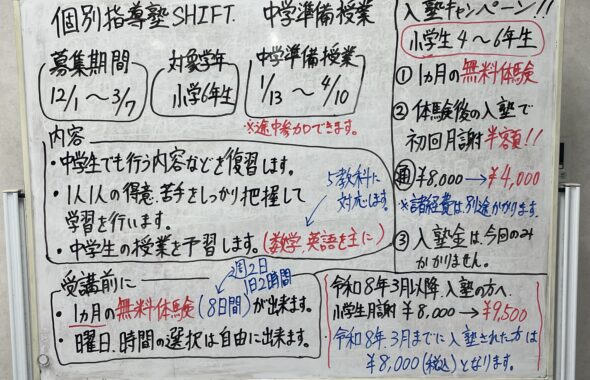 個別指導塾SHIFT. 中学準備授業
募集期間
12/1 ～ 3/7
対象学年
小学6年生
中学準備授業
1/13 ～ 4/10
※途中参加できます。
内容
・中学生でも行う内容などを復習します。
・1人1人の得意、苦手をしっかり把握して
学習を行います。
5教科に
対応します
・中学生の授業を予習します。(数学、英語を主に)
受講前に
週2日
1日2時間
・1ヵ月の無料体験(8日間)が出来ます。
・曜日、時間の選択は自由に出来ます。
入塾キャンペーン!!
小学生4～6年生
① 1ヵ月の無料体験
② 体験後の入塾で
初回月謝半額!!
週1 ¥8,000→¥4,000
※諸経費は別途かかります。
③ 入塾金は今回のみ
かかりません。
令和8年3月以降、入塾の方へ
小学生月謝 ¥8,000→¥9,500
・令和8年、3月までに入塾された方は
¥8,000(税込)となります。